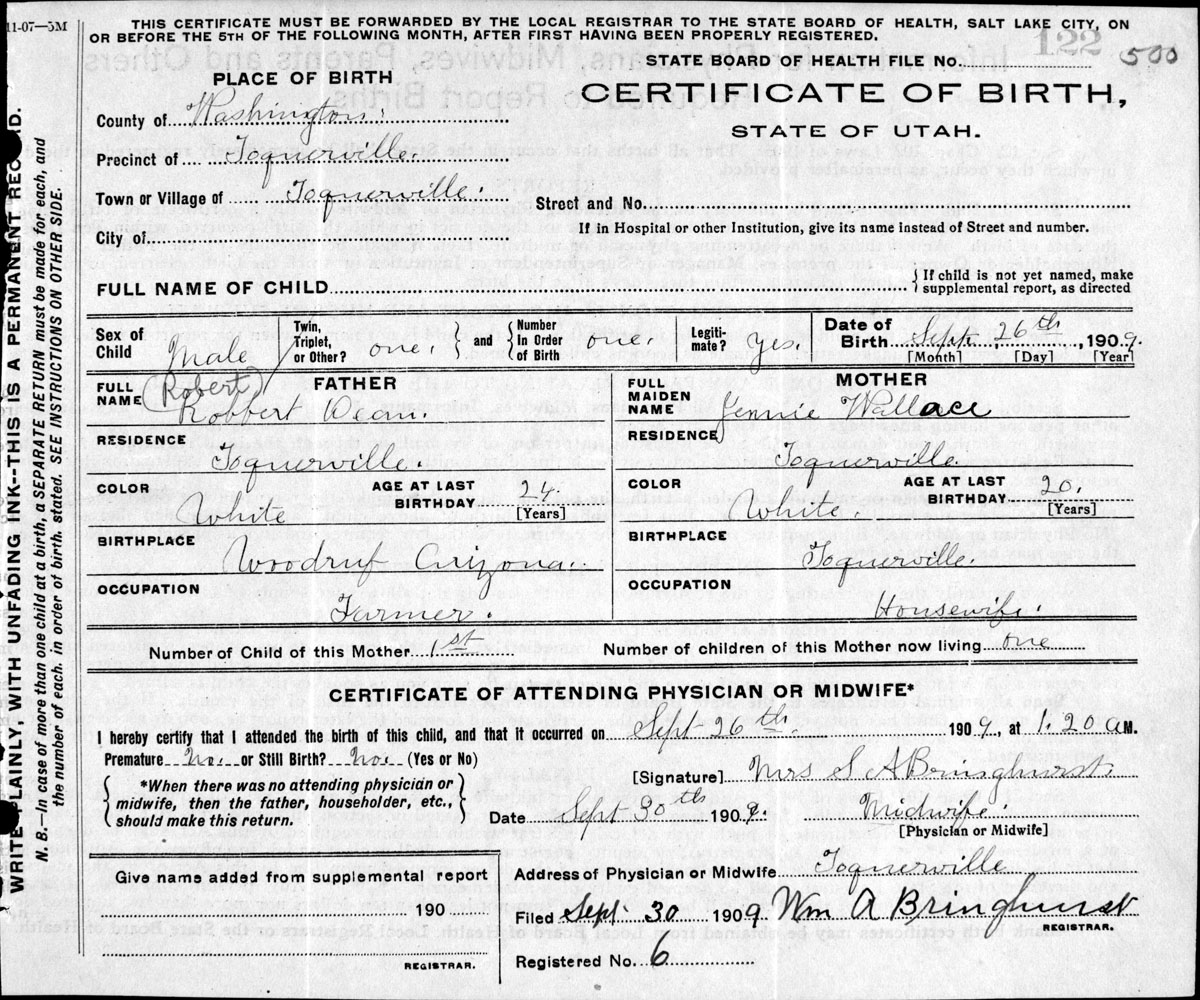 11-07—5M
THIS CERTIFICATE MUST BE FORWARDED BY THE LOCAL REGISTRAR TO THE STATE BOARD OF HEALTH, SALT LAKE CITY, ON
OR BEFORE THE 5TH OF THE FOLLOWING MONTH, AFTER FIRST HAVING BEEN PROPERLY REGISTERED.
122
500
STATE BOARD OF HEALTH FILE No.
CERTIFICATE OF BIRTH,
STATE OF UTAH.
PLACE OF BIRTH
County of Washington.
Precinct of Toquerville.
Town or Village of Toquerville.
Street and No.
City of
If in Hospital or other Institution, give its name instead of Street and number.
FULL NAME OF CHILD
If child is not yet named, make
supplemental report, as directed
Sex of Child Male
Twin, Triplet, or Other? one.
and
Number In Order of Birth one.
Legiti-mate? yes.
Date of Birth Sept. 26th, 1909.
[Month] [Day] [Year]
FATHER
FULL NAME (Robert)
Robbert Dean.
RESIDENCE
Toquerville.
COLOR
White
AGE AT LAST BIRTHDAY 24.
[Years]
BIRTHPLACE
Woodruf Arizona.
OCCUPATION
Farmer.
MOTHER
FULL MAIDEN NAME Jennie Wallace
RESIDENCE
Toquerville.
COLOR
White.
AGE AT LAST BIRTHDAY 20.
[Years]
BIRTHPLACE
Toquerville.
OCCUPATION
Housewife.
Number of Child of this Mother 1st
Number of children of this Mother now living one
CERTIFICATE OF ATTENDING PHYSICIAN OR MIDWIFE*
I hereby certify that I attended the birth of this child, and that it occurred on Sept 26th. 1909, at 1.20 AM.
Premature No. or Still Birth? No. (Yes or No)
*When there was no attending physician or
midwife, then the father, householder, etc.,
should make this return.
[Signature] Mrs S A Bringhurst.
Date Sept 30th 1909.
Midwife.
[Physician or Midwife]
Give name added from supplemental report
190
REGISTRAR.
Address of Physician or Midwife Toquerville
Filed Sept. 30 1909 Wm A Bringhurst
REGISTRAR.
Registered No. 6
WRITE PLAINLY, WITH UNFADING INK--THIS IS A PERMANENT RECORD.
N. B.—In case of more than one child at a birth, a SEPARATE RETURN must be made for each, and
the number of each, in order of birth, stated. SEE INSTRUCTIONS ON OTHER SIDE.